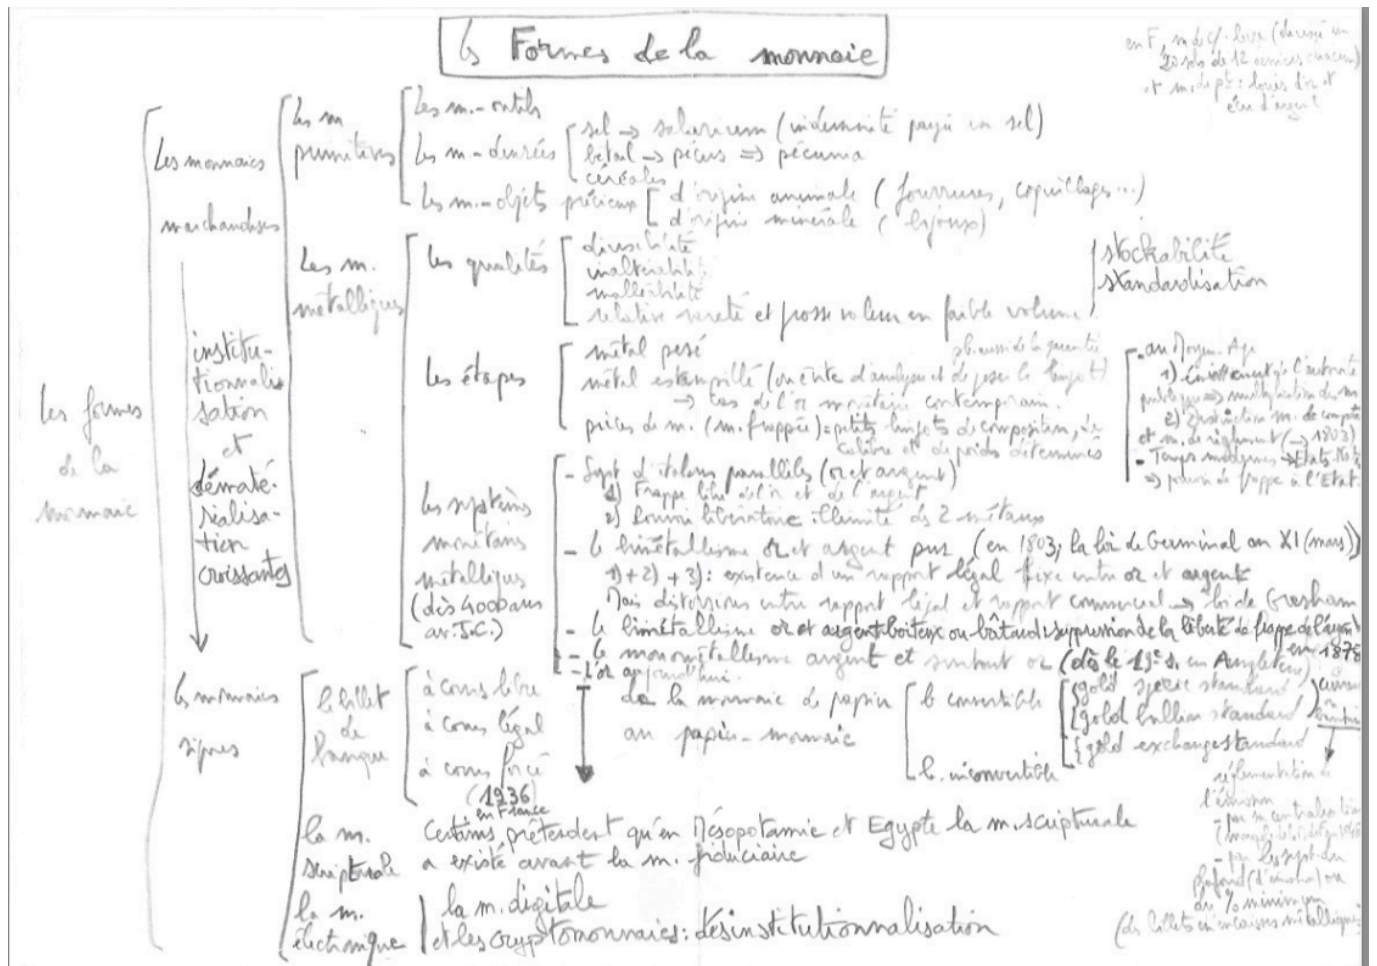 Formes de la monnaie
en F, m de c/. livre (divisée en
20 sols de 12 deniers chacun)
et m. de pt : louis d'or et
écu d'argent
les formes
de la
monnaie
Les monnaies
marchandises
institu-
tionnali
sation
et
dématé-
rialisa-
tion
croissantes
les monnaies
signes
Les m
primitives
Les m.-outils
Les m-denrées
sel → salarium (indemnité payée en sel)
bétail → pécus ⇒ pécunia
céréales
Les m.-objets précieux
d'origine animale (fourrures, coquillages...)
d'origine minérale (bijoux)
Les m.
métalliques
les qualités
divisibilité
inaltérabilité
malléabilité
relative rareté et grosse valeur en faible volume
stockabilité
standardisation
les étapes
métal pesé
métal estampillé (on évite d'analyser et de peser le lingot)
→ cas de l'or monétaire contemporain.
pièces de m. (m. frappée) = petits lingots de composition, de
calibre et de poids déterminés
- au Moyen-Age
1) Emiettement de l'autorité
publique ⇒ multiplication des m
2) Distinction m. de compte
et m. de règlement (→ 1803)
- Temps modernes → Etats-Nat.
⇒ pouvoir de frappe à l'Etat.
Les systèmes
monétaires
métalliques
(dès 400 ans
av. J.C.)
- Syst d'étalons parallèles (or et argent)
1) Frappe libre de l'or et de l'argent
2) Pouvoir libératoire illimité des 2 métaux
- le bimétallisme or et argent pur (en 1803; la loi de Germinal an XI (mars))
1) + 2) + 3) : existence d'un rapport légal fixe entre or et argent
Mais distorsions entre rapport légal et rapport commercial → loi de Gresham
- le bimétallisme or et argent boiteux ou bâtard : suppression de la liberté de frappe de l'argent
en 1878
- le monométallisme argent et surtout or (dès le 19e s. en Angleterre)
- L'or aujourd'hui.
le billet
de
banque
à cours libre
à cours légal
à cours forcé
(1936)
en France
de la monnaie de papier
au papier-monnaie
b. convertible
gold specie standard
gold bullion standard
gold exchange standard
b. inconvertible
réglementation de
l'émission
- par le syst. du
plafond (d'émission) ou
du % minimum
(des billets en encaisses métalliques)
la m.
scripturale
Certains prétendent qu'en Mésopotamie et Egypte la m. scripturale
a existé avant la m. fiduciaire
la m.
électronique
la m. digitale
et les cryptomonnaies : désinstitutionnalisation